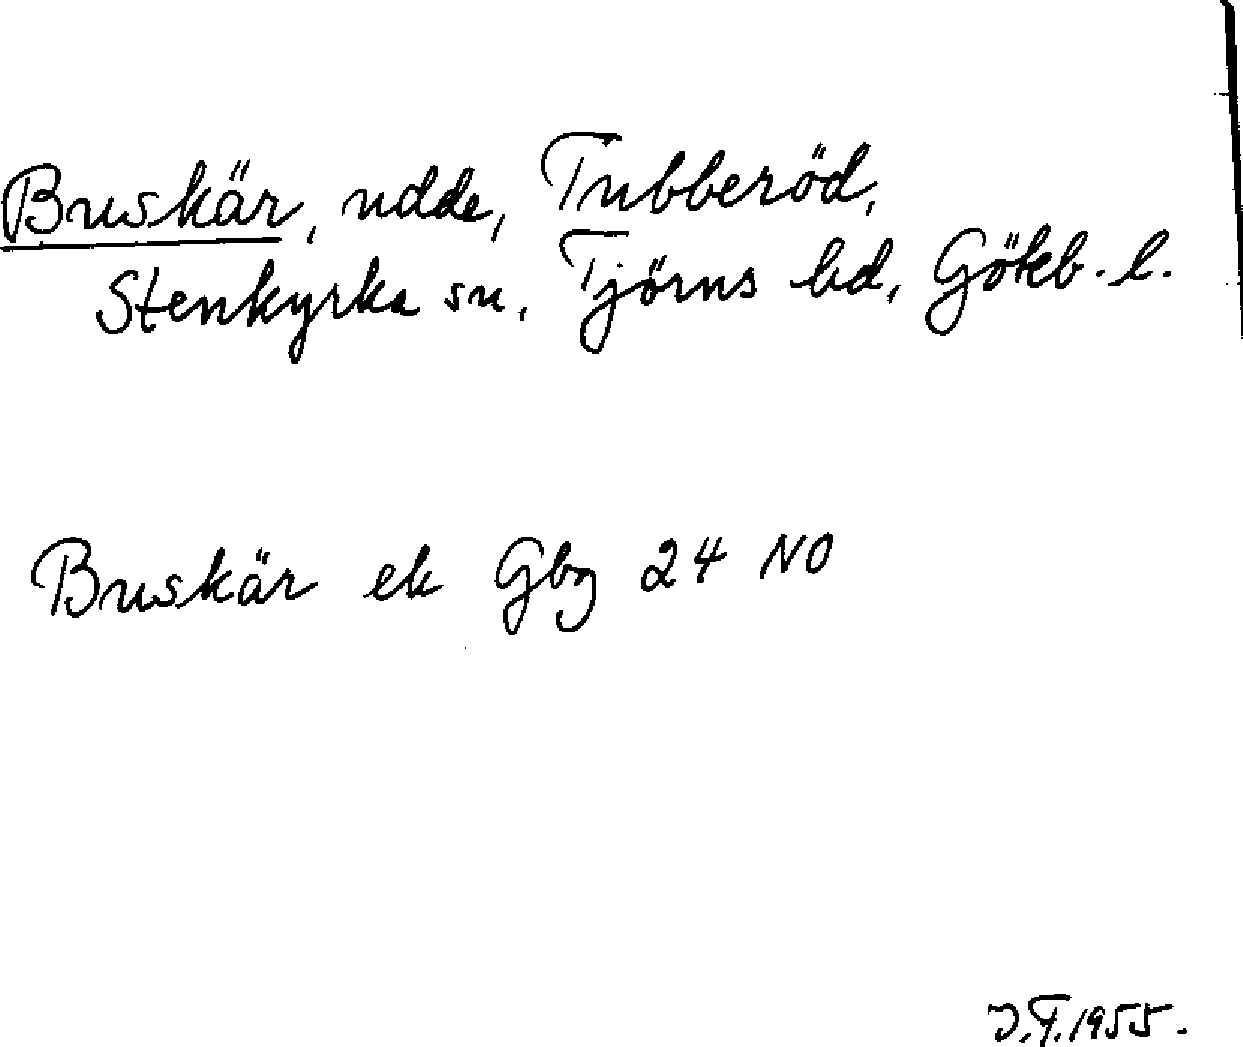 Buskär, udde, Tubberöd,
Stenkyrka sn, Tjörns hd, Göteb. l.
Buskär ek Gbg 24 NO
J.F. 1955.